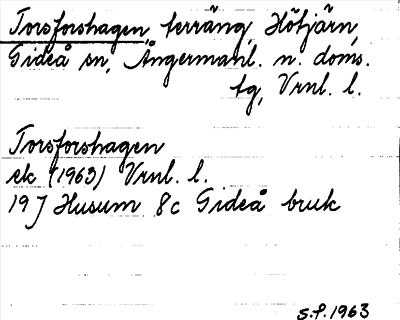 Torsforshagen, terräng, Hötjärn,
Gideå sn, Ångermanl. n. doms.
tg, Vrnl. l.
Torsforshagen
ek (1963) Vrnl. l.
19 J Husum 8c Gideå bruk
S.P. 1963